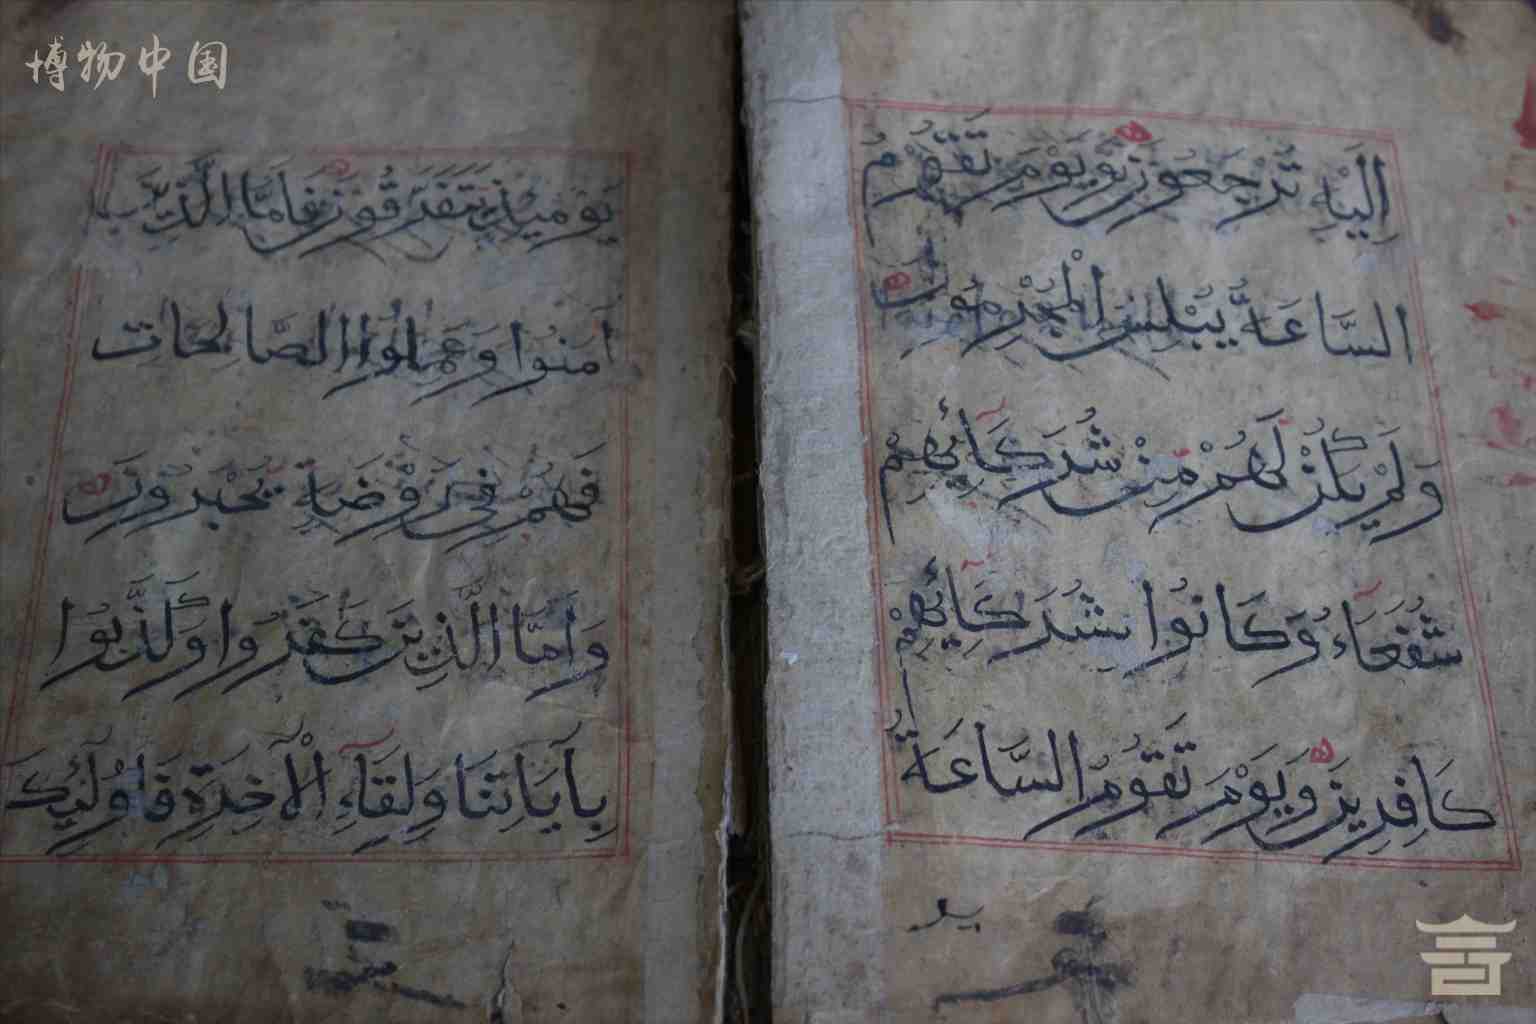 博物中国
اِلَيْهِ تُرْجَعُونَ وَيَوْمَ تَقُومُ
السَّاعَةُ يُبْلِسُ الْمُجْرِمُونَ
وَلَمْ يَكُنْ لَهُمْ مِنْ شُرَكَآئِهِمْ
شُفَعَآءُ وَكَانُوا بِشُرَكَآئِهِمْ
كَافِرِينَ وَيَوْمَ تَقُومُ السَّاعَةُ
يَوْمَئِذٍ يَتَفَرَّقُونَ فَاَمَّا الَّذِينَ
اٰمَنُوا وَعَمِلُوا الصَّالِحَاتِ
فَهُمْ فِي رَوْضَةٍ يُحْبَرُونَ
وَاَمَّا الَّذِينَ كَفَرُوا وَكَذَّبُوا
بِاٰيَاتِنَا وَلِقَآءِ الْاٰخِرَةِ فَاُولٰئِكَ